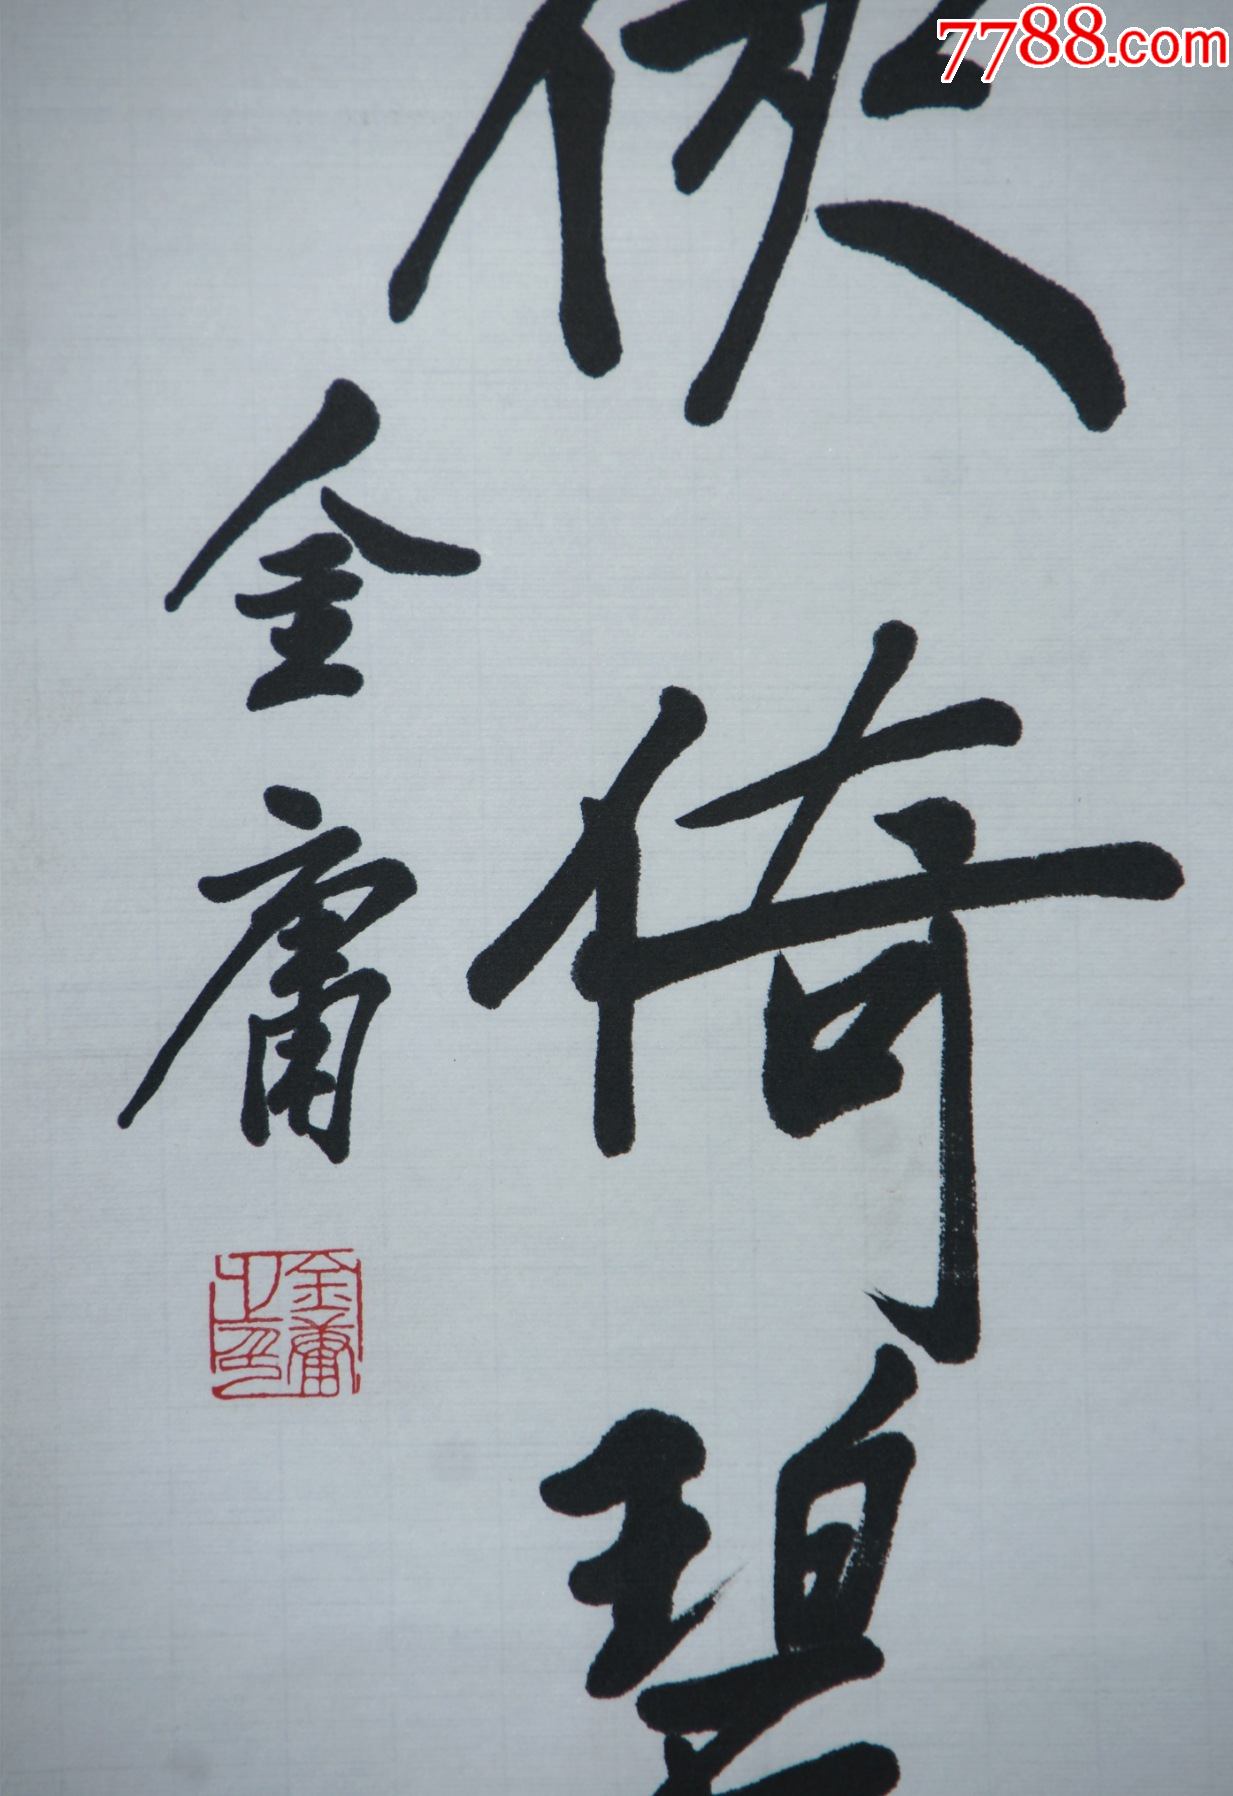 7788.com
侠倚碧
金庸
金庸之印